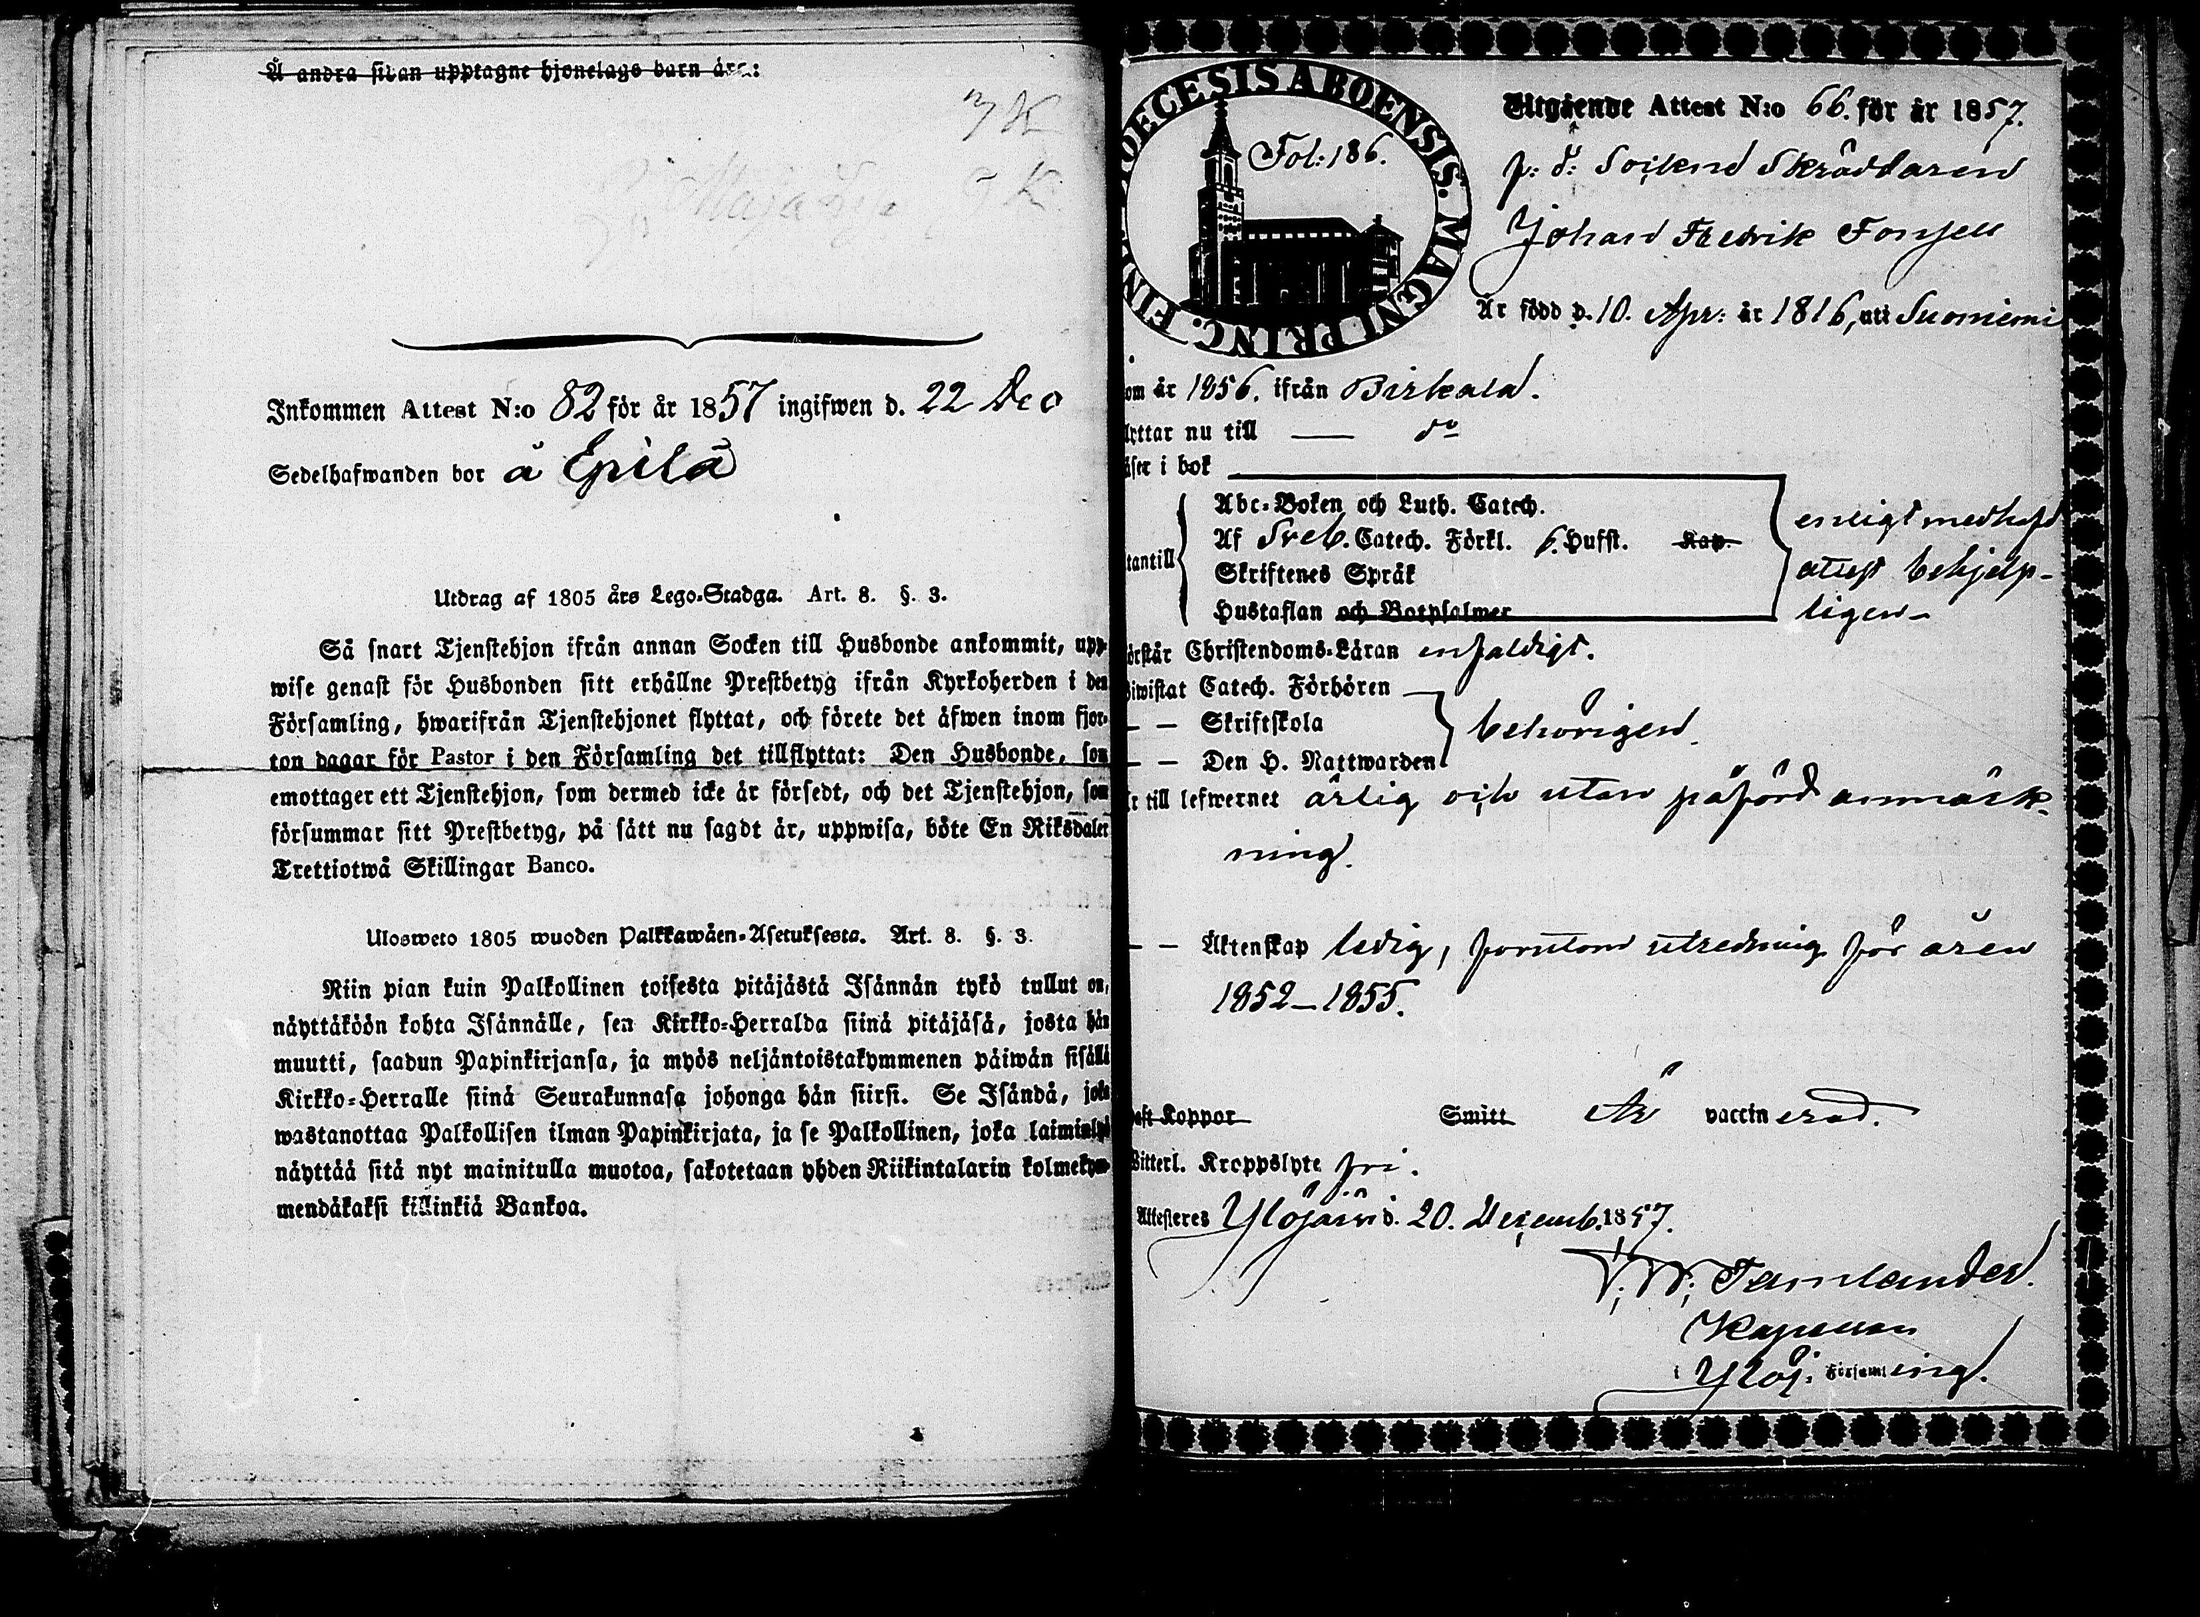 Å andra sidan upptagne hjonelags barn äro:
3 K
Maja K
Inkommen Attest N:o 82 för år 1857 ingifwen d. 22 Dec
Sedelhafwanden bor å Epilä
Utdrag af 1805 års Lego-Stadga. Art. 8. §. 3.
Så snart Tjenstehjon ifrån annan Socken till Husbonde ankommit, upp-
wise genast för Husbonden sitt erhållne Prestbetyg ifrån Kyrkoherden i den
Församling, hwarifrån Tjenstehjonet flyttat, och förete det äfwen inom fjor-
ton dagar för Pastor i den Församling det tillflyttat: Den Husbonde, som
emottager ett Tjenstehjon, som dermed icke är försedt, och det Tjenstehjon, som
försummar sitt Prestbetyg, på sätt nu sagdt är, uppwisa, böte En Riksdaler
Trettiotwå Skillingar Banco.
Ulosweto 1805 wuoden Palkkawäen-Asetuksesta. Art. 8. §. 3.
Niin pian kuin Palkollinen toisesta pitäjästä Isännän tykö tullut on,
näyttäköön kohta Isännälle, sen Kirkko-Herralda siinä pitäjäsä, josta hän
muutti, saadun Papinkirjansa, ja myös neljäntoistakymmenen päiwän sisällä
Kirkko-Herralle siinä Seurakunnasa johonga hän siirsi. Se Isändä, joka
wastanottaa Palkollisen ilman Papinkirjata, ja se Palkollinen, joka laiminlyö
näyttää sitä nyt mainitulla muotoa, sakotetaan yhden Riikintalarin kolmekym-
mendäkaksi killinkiä Bankoa.
DIOECESIS ABOENSIS. MAGNI PRINC. FINL.
Fol: 186.
Utgående Attest N:o 66. för år 1857.
f: d: Sockne Skräddaren
Johan Fredrik Fonsell
Är född d. 10. Apr: år 1816, uti Suoniemi
om år 1856. ifrån Birkala.
lyttar nu till — do
äser i bok
Abc-Boken och Luth. Catech.
tantill Af Sveb. Catech. Förkl. 6. Hufst. Kap.
Skriftenes Språk
Hustaflan och Botpsalmer
enligt medhafd
attest behjelp-
ligen -
örstår Christendoms-Läran enfaldigt.
Biwistat Catech. Förhören
— — Skriftskola
— — Den H. Nattwarden
behörigen.
r till lefwernet ärlig och utan påförd anmärk-
ning.
— — Äktenskap ledig, förutom utredning för åren
1852–1855.
aft Koppor Smitt Är vaccinerad.
Witterl. Kroppslyte fri.
Attesteres Ylöjärvi d. 20. Decemb. 1857.
V. W. Tamlander.
Kapellan
i Ylöj: Församling.